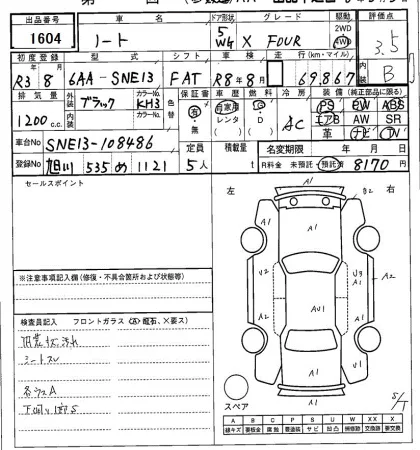 出品番号 車名 ドア形状 グレード 駆動 評価点
1604 ノート 5 WG X FOUR 2WD 4WD 3.5
初度登録 型式 シフト 車検 走行(km・マイル) 内装
R3年8月 6AA-SNE13 FAT R8年8月 69,867 B
排気量 外装色 カラーNo. 色替 保証書 車歴 燃料 冷房 装備(純正部品に限る)
1200c.c. ブラック KH3 有・無 自家用 レンタ G D AC PS PW ABS
エアB AW SR
革 ナビ TV
カラーNo.
車台No SNE13-108486 定員 積載量 名変期限 年 月 日
登録No 旭川 535 め 1121 5人 t R料金 未預託・預託済 8170円
セールスポイント 左 右
A1
B2
A1 A1
A1
U2 U3 A1 A2
AU1
A2 A1
A1
A1
※注意事項記入欄(修復・不具合箇所および状態等)
検査員記入 フロントガラス(A、飛石、X要ス)
内装キズ汚れ
シートスレ
各ウスA
下回り 1部S
スペア
S/T
A B C P S U W X XX X
線キズ 要板金 腐食 要塗装 サビ 凹凸 補修跡 交換跡 要交換